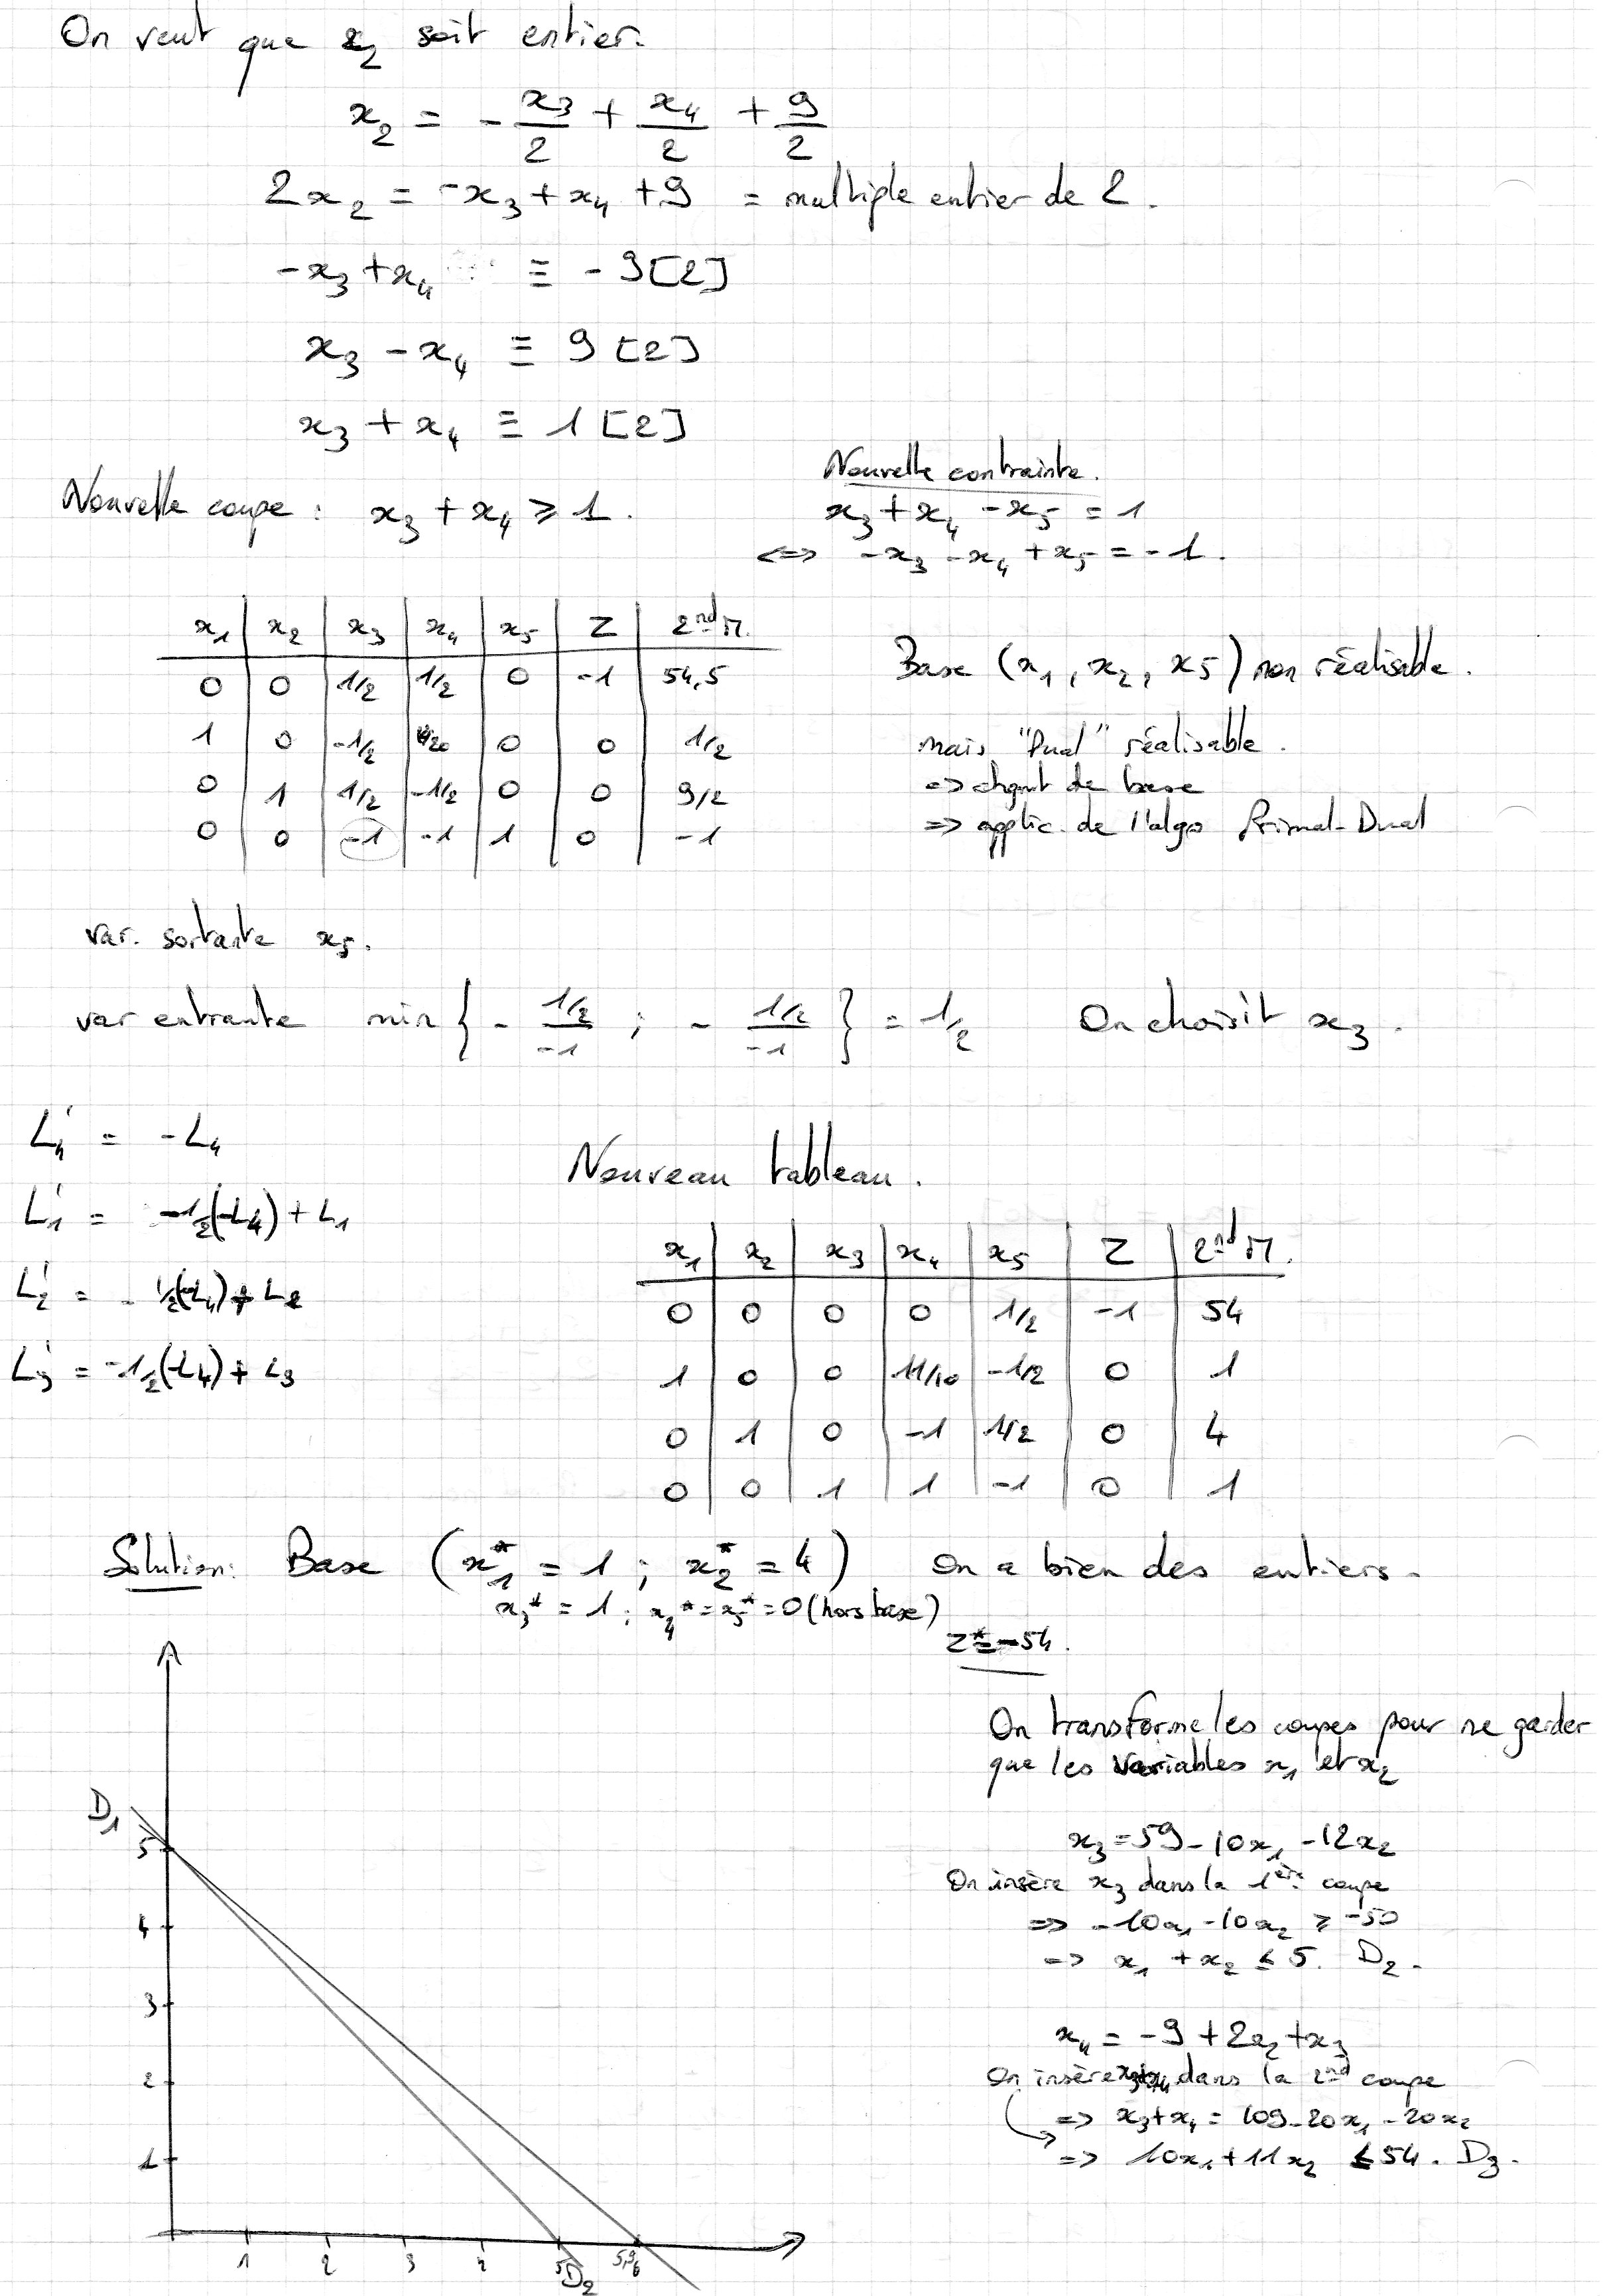 On veut que x₂ soit entier.
x₂ = - x₃/2 + x₄/2 + 9/2
2x₂ = -x₃ + x₄ + 9 = multiple entier de 2.
-x₃ + x₄ ≡ - 9 [2]
x₃ - x₄ ≡ 9 [2]
x₃ + x₄ ≡ 1 [2]
Nouvelle coupe : x₃ + x₄ ≥ 1.
Nouvelle contrainte.
x₃ + x₄ - x₅ = 1
<=> -x₃ - x₄ + x₅ = -1.
x₁ | x₂ | x₃ | x₄ | x₅ | Z | 2nd M.
0 | 0 | 1/2 | 1/2 | 0 | -1 | 54,5
1 | 0 | -1/2 | | 0 | 0 | 1/2
0 | 1 | 1/2 | -1/2 | 0 | 0 | 9/2
0 | 0 | -1 | -1 | 1 | 0 | -1
Base (x₁, x₂, x₅) non réalisable.
mais "Dual" réalisable.
=> chgmt de base
=> applic. de l'algo Primal-Dual
var. sortante x₅.
var entrante min { - (1/2)/-1 ; - (1/2)/-1 } = 1/2 On choisit x₃.
L₄' = -L₄
L₁' = -1/2(-L₄) + L₁
L₂' = 1/2(-L₄) + L₂
L₃' = -1/2(-L₄) + L₃
Nouveau tableau.
x₁ | x₂ | x₃ | x₄ | x₅ | Z | 2nd M.
0 | 0 | 0 | 0 | 1/2 | -1 | 54
1 | 0 | 0 | 11/10 | -1/2 | 0 | 1
0 | 1 | 0 | -1 | 1/2 | 0 | 4
0 | 0 | 1 | 1 | -1 | 0 | 1
Solution: Base (x₁* = 1 ; x₂* = 4) On a bien des entiers.
x₃* = 1 ; x₄* = x₅* = 0 (hors base)
Z* = -54.
On transforme les coupes pour ne garder
que les variables x₁ et x₂
x₃ = 59 - 10x₁ - 12x₂
On insère x₃ dans la 1ère coupe
=> -10x₁ - 10x₂ ≥ -50
=> x₁ + x₂ ≤ 5. D₂.
x₄ = -9 + 2x₂ + x₃
On insère dans la 2nd coupe
=> x₃ + x₄ = 109 - 20x₁ - 20x₂
=> 10x₁ + 11x₂ ≤ 54. D₃.
D₁
5
4
3
2
1
1 2 3 4 5 5,9
D₂